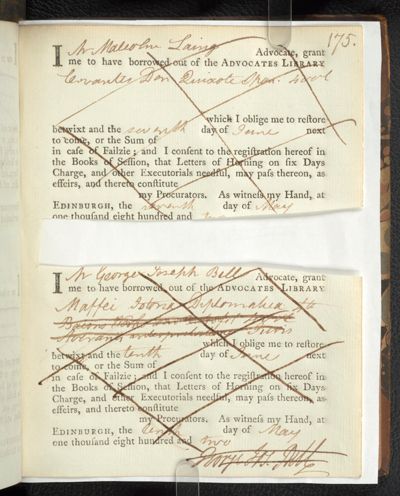 175.
I Mr Malcolm Laing Advocate, grant
me to have borrowed out of the ADVOCATES LIBRARY
Cervantes Don Quixote Span. 4 vols
which I oblige me to restore
betwixt and the seventh day of June next
to come, or the Sum of
in case of Failzie; and I consent to the registration hereof in
the Books of Session, that Letters of Horning on six Days
Charge, and other Executorials needful, may pass thereon, as
effeirs, and thereto constitute
my Procurators. As witness my Hand, at
EDINBURGH, the seventh day of May
one thousand eight hundred and
I Mr George Joseph Bell Advocate, grant
me to have borrowed out of the ADVOCATES LIBRARY
Maffei Istoria Diplomatica
Juris
which I oblige me to restore
betwixt and the tenth day of June next
to come, or the Sum of
in case of Failzie; and I consent to the registration hereof in
the Books of Session, that Letters of Horning on six Days
Charge, and other Executorials needful, may pass thereon, as
effeirs, and thereto constitute
my Procurators. As witness my Hand, at
EDINBURGH, the tenth day of May
one thousand eight hundred and two
George Jos. Bell